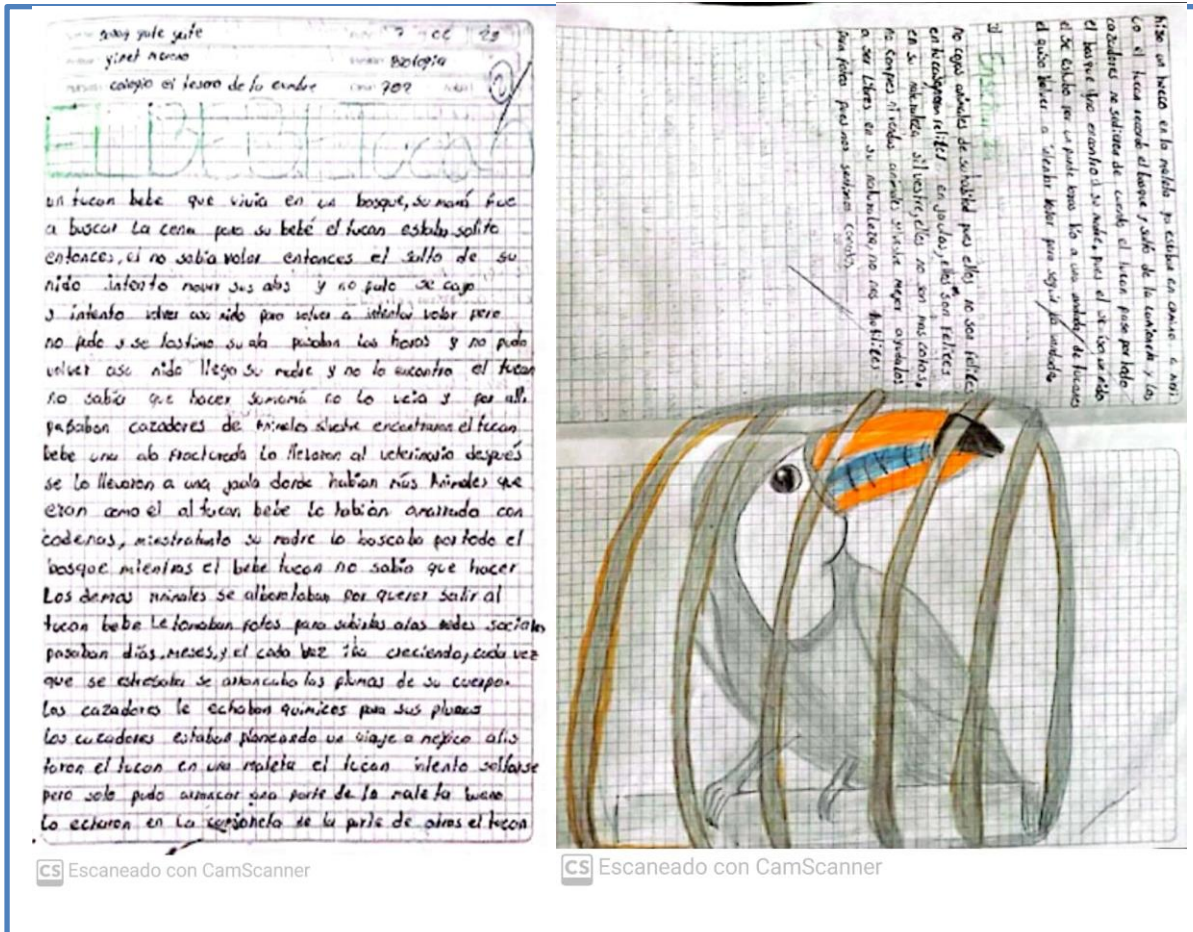 yule yule 7 06 23
yinet moreno Biologia
colegio el tesoro de la cumbre 702
El BEBE Tucan
un tucan bebe que vivia en un bosque, su mamá fue
a buscar la cena para su bebé el tucan estaba solito
entonces, el no sabia volar entonces el salto de su
nido intento mover sus alas y no pudo se cayo
y intento volver asu nido para volver a intentar volar pero
no pudo y se lastimo su ala pasaban las horas y no pudo
volver asu nido llego su madre y no lo encontro el tucan
no sabia que hacer su mamá no lo veia y por alli
pasaban cazadores de animales encontraron el tucan
bebe una ala fracturada lo llevaron al veterinario después
se lo llevaron a una jaula donde habian más Animales que
eran como él al tucan bebe lo habian amarrado con
cadenas, su madre lo buscaba por todo el
bosque mientras el bebe tucan no sabia que hacer
Los demas animales se alborotaban por querer salir al
tucan bebe Le tomaban fotos para subirlas alas redes sociales
pasaban días, meses, y el cada vez iba creciendo, cada vez
que se estresaba se arrancaba las plumas de su cuerpo.
Los cazadores le echaban quimicos para sus plumas
los cazadores estaban planeando un viaje a mexico alis
taron el tucan en una maleta el tucan intento soltarse
pero solo pudo arrancar una parte de la maleta bueno
lo echaron en la camioneta de la parte de atras el tucan
hiso un hueco en la maleta ya estaban en camino a mexi
co el tucan recordo el bosque y salto de la camioneta y los
cazadores no se dieron de cuenta el tucan paso por todo
el bosque y no encontro a su madre, pues el se iso un nido
el se estubo por un puente vio a una de tucanes
el quiso volver a intentar volar para seguir la
3) Enseñanza
no cojas animales de su habitad pues ellos no son felices
en jaulas, ellos son felices
en su naturaleza silvestre, ellos no son mascotas,
no compres ni vendas animales silvestre mejor ayudalos
a ser libres en su naturaleza, no nos utilices
para fotos pues nos sentimos
CS Escaneado con CamScanner
CS Escaneado con CamScanner